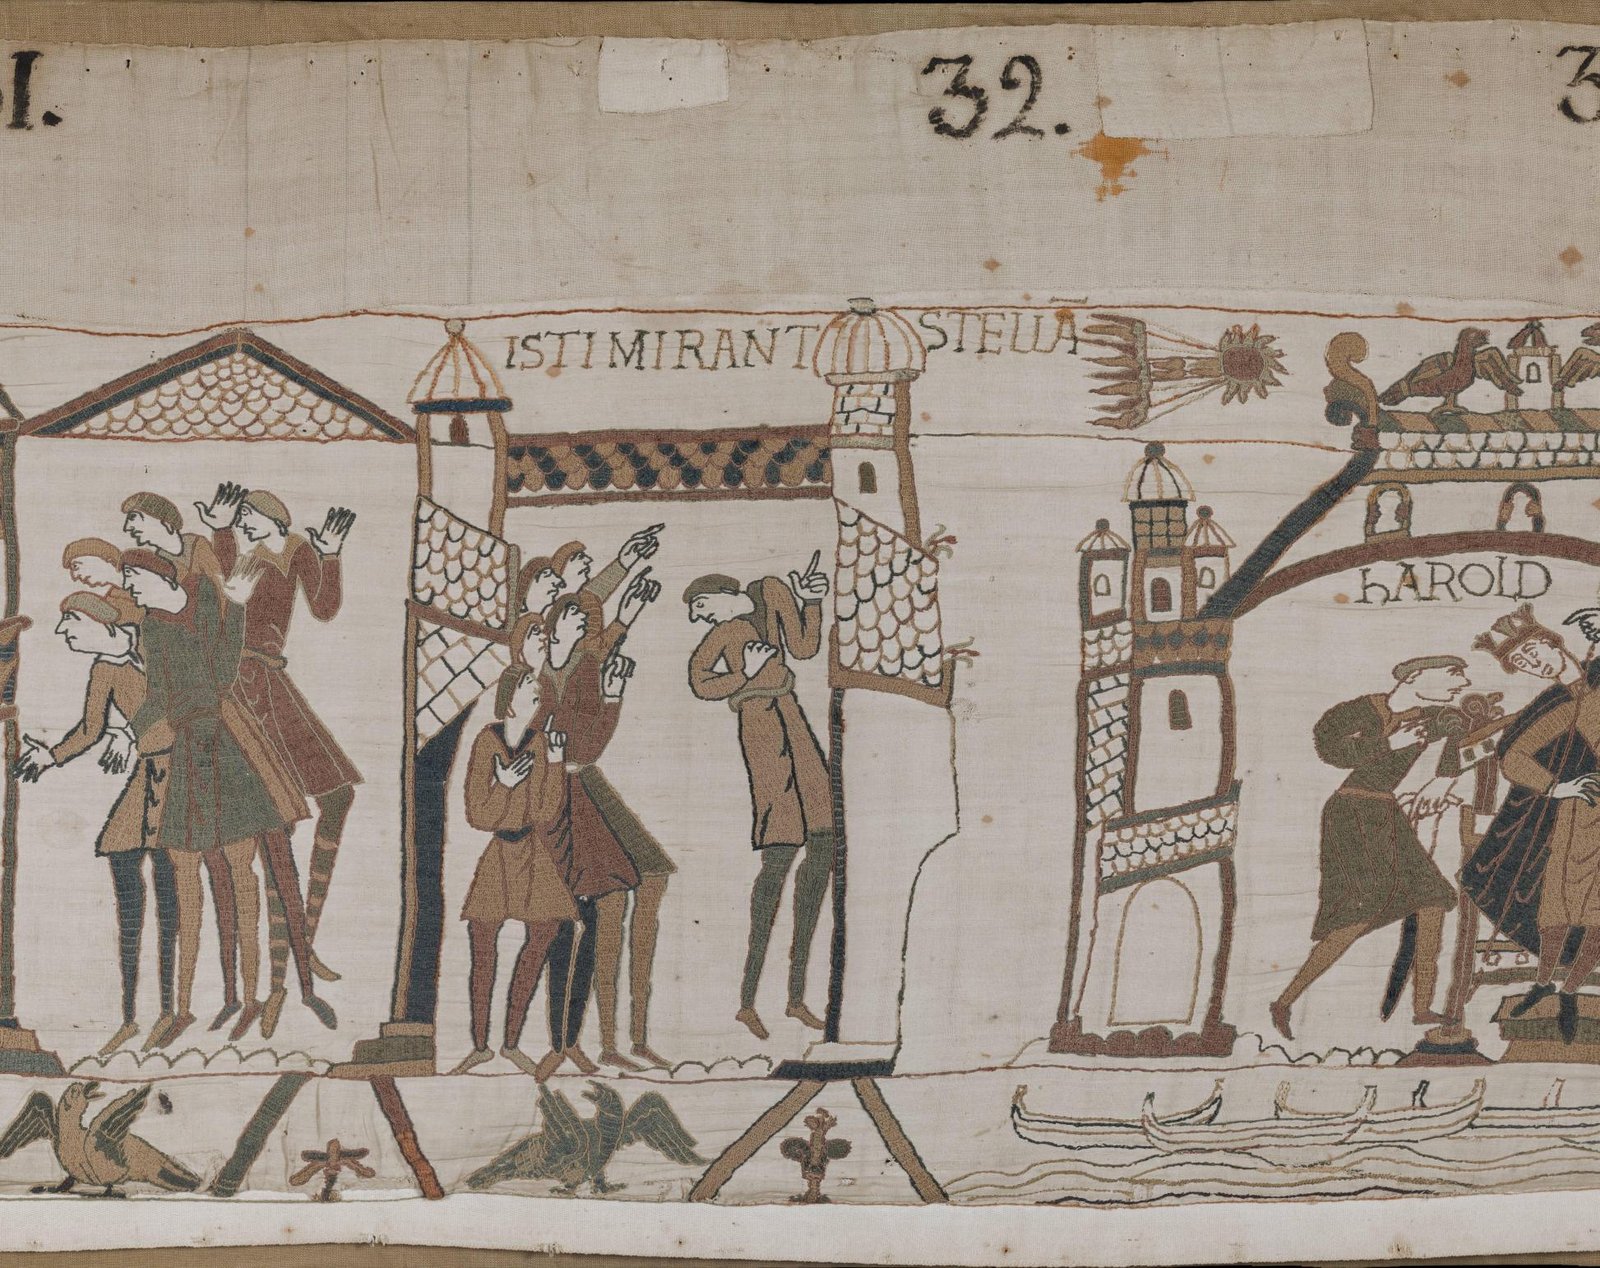 I.
32.
3
ISTI MIRANT STELLĀ
hAROLD